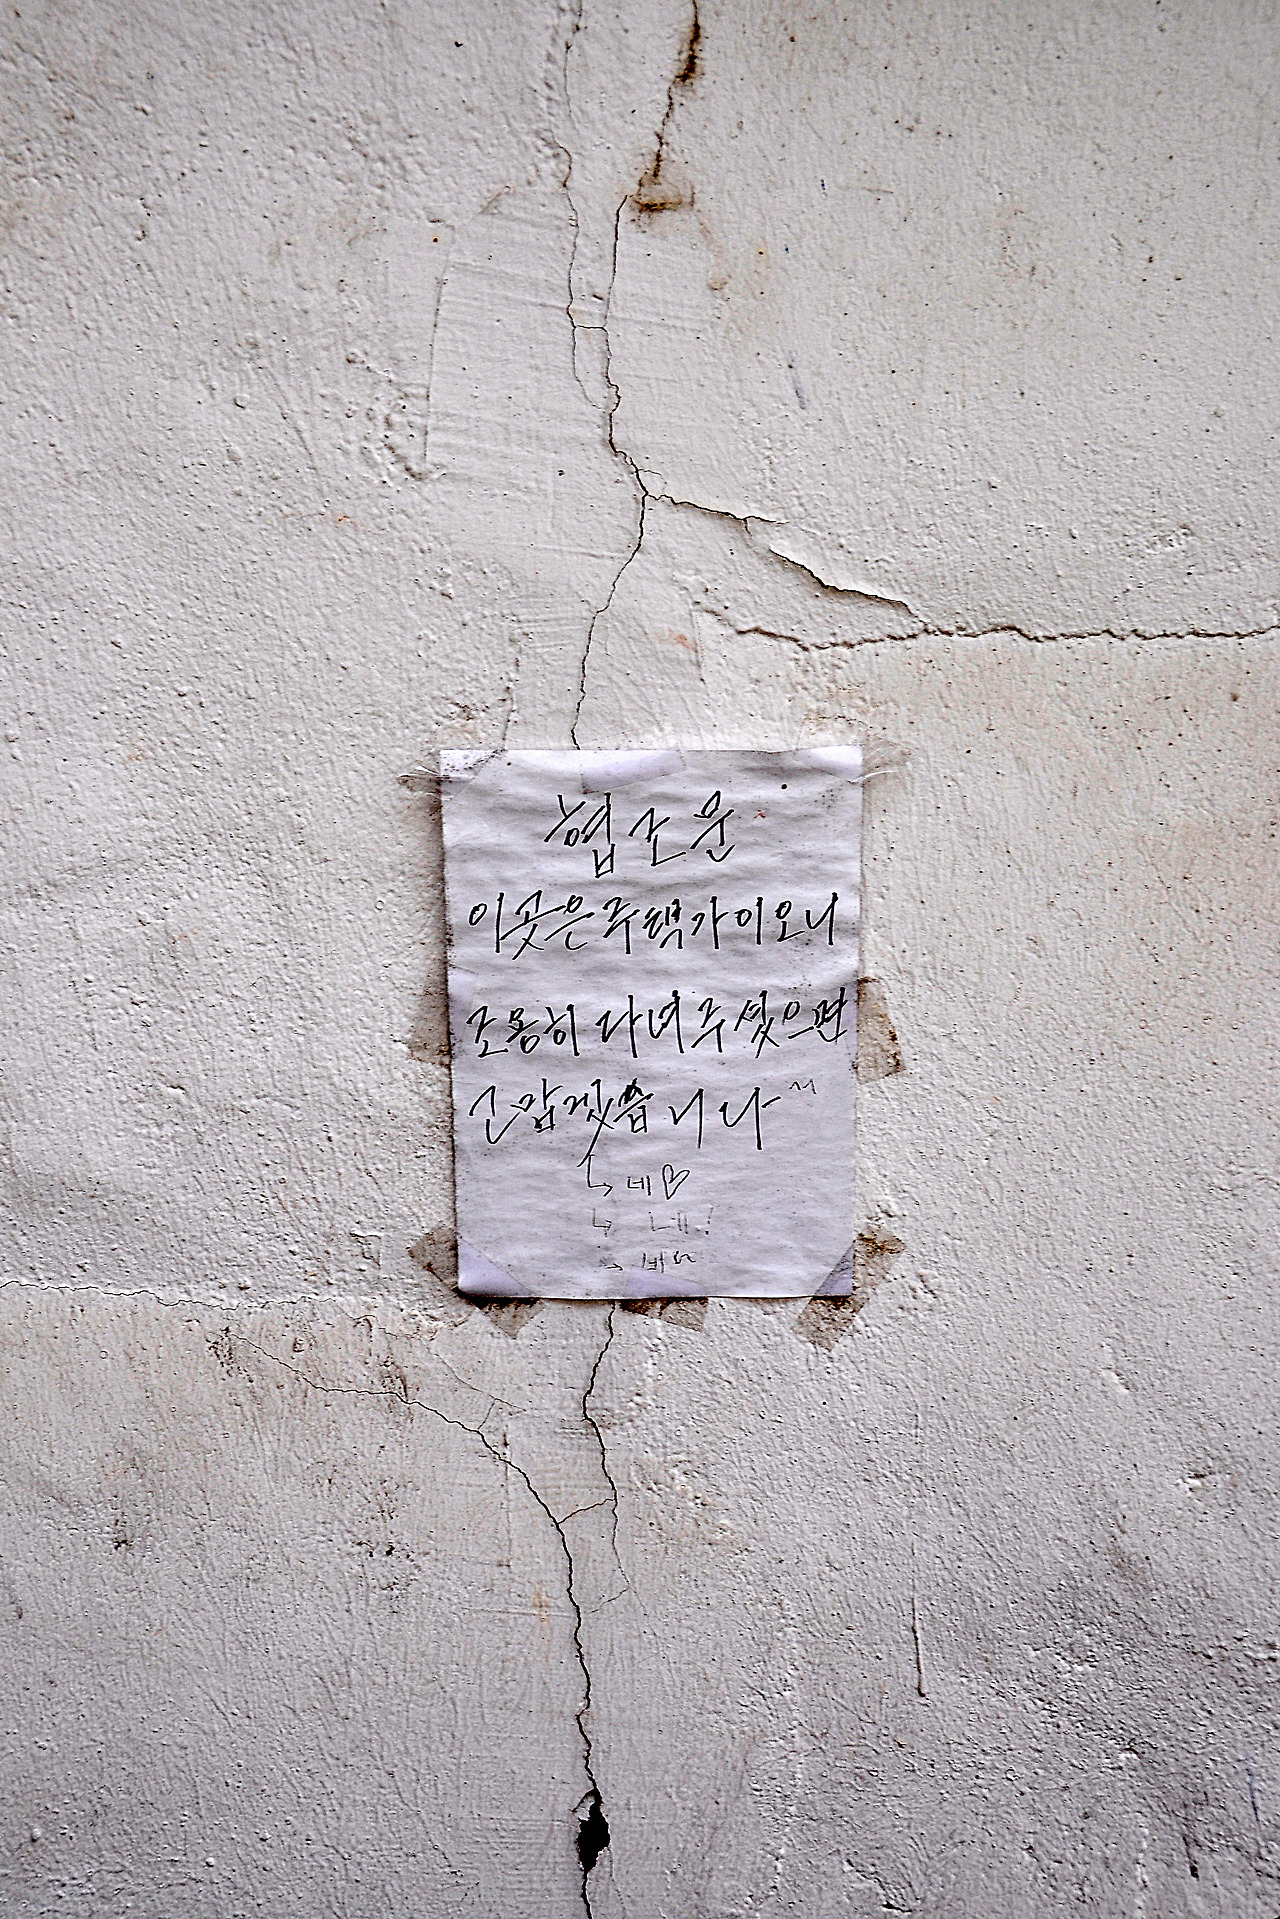 협조문
이곳은 주택가이오니
조용히 다녀주셨으면
고맙겠씁니다~
↳ 네♡
↳ 네!